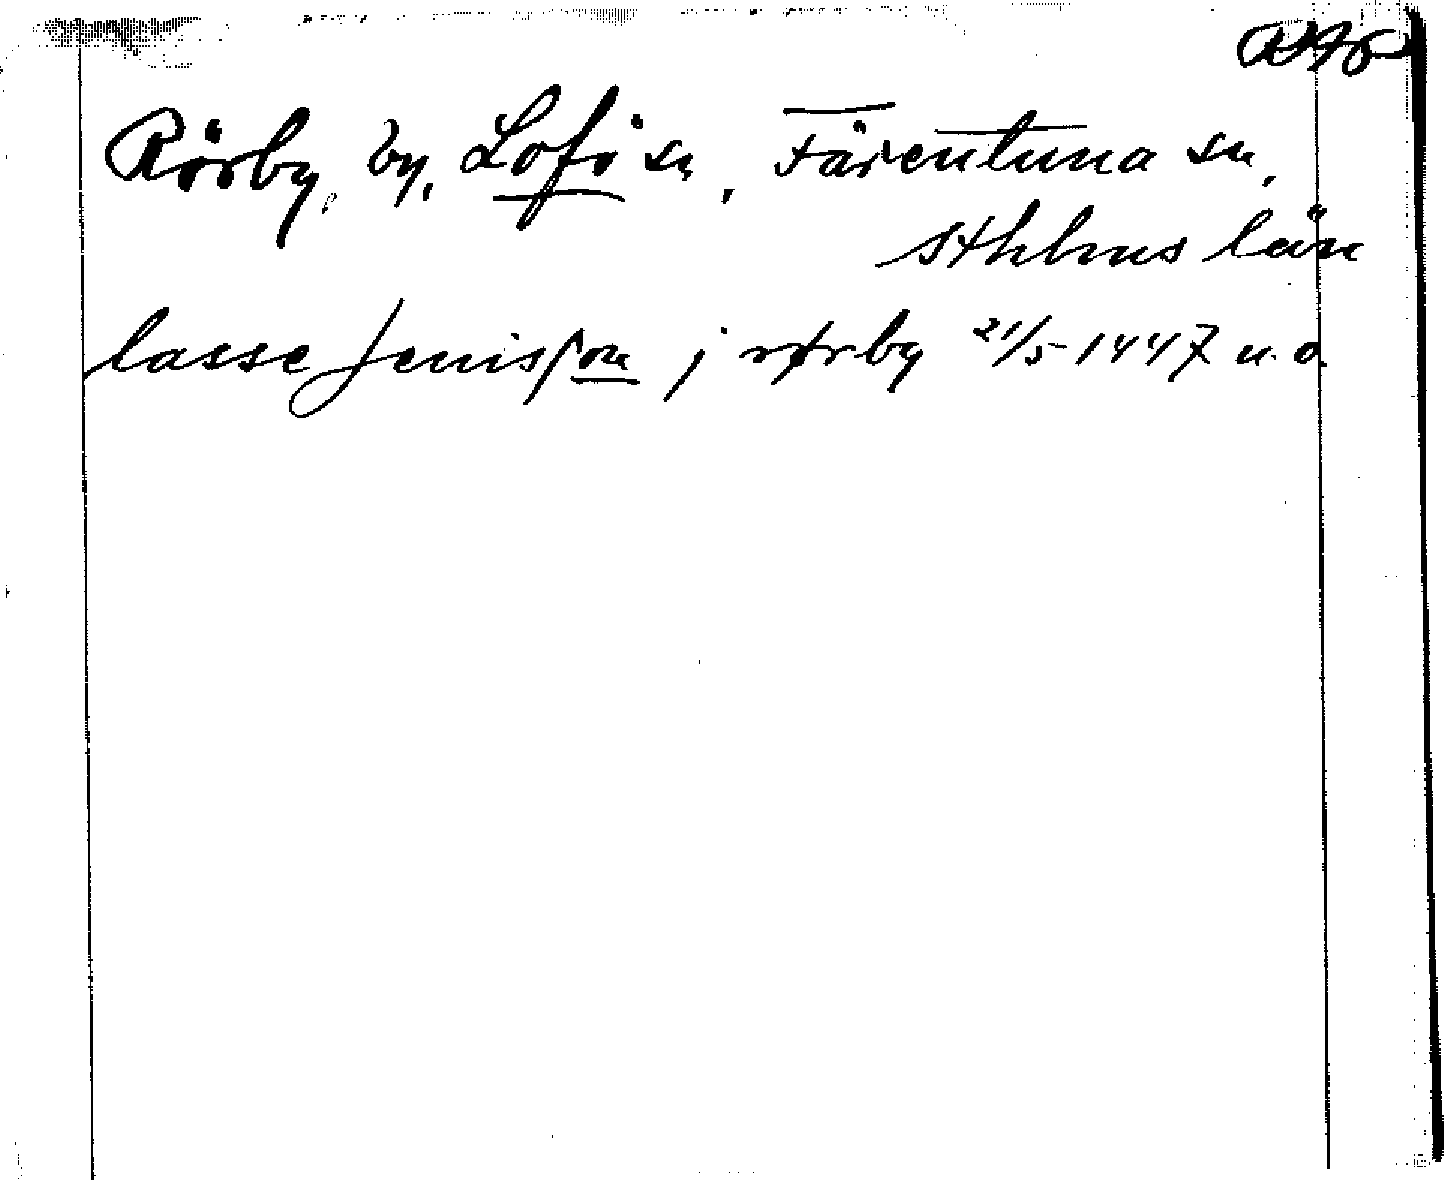 Rörby, by, Lofö sn, Färentuna sn,
Sthlms län
lasse Jenisson j rørby 21/5 1447 u. o.